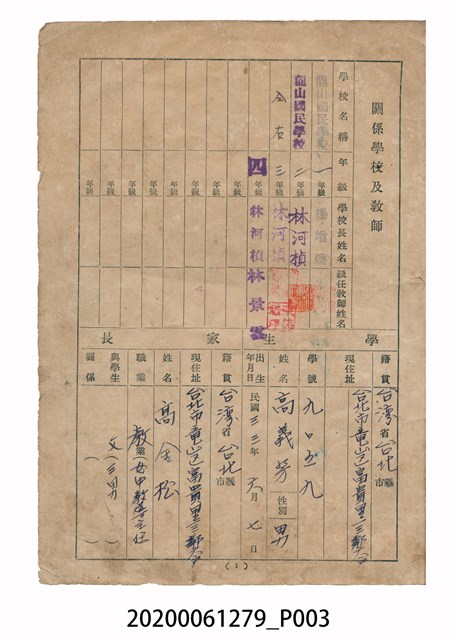 關係學校及教師
學校名稱 年級 學校長姓名 級任教師姓名
龍山國民學校 一 年級
龍山國民學校 二 年級 林河楨
仝右 三 年級 林河楨
四 年級 林河楨 林景雲
年級
年級
年級
年級
年級
年級
學生
籍貫 台灣省台北縣市
現住址 台北市龍山區富貴里三鄰
學號 九〇五九
姓名 高義芳 性別 男
出生年月日 民國三三年六月七日
家長
籍貫 台灣省台北縣市
現住址 台北市龍山區富貴里三鄰
姓名 高金松
職業 教業(女中教
與學生關係 父(三男)
( )
(1)
20200061279_P003